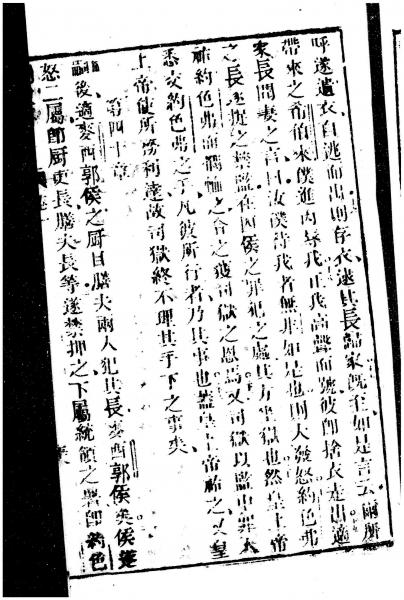 呼遂遺衣自逃而出則存衣逮其長歸家既至如是言云爾所
帶來之希伯來僕進內辱我正我高聲而號彼卽捨衣走出適
家長聞妻之言曰汝僕待我者無非如是也則大發怒約色弗
之長遂捉之禁監在因侯之罪犯之處其方坐獄也然皇上帝
祐約色弗而憫恤之令之獲司獄之恩焉又司獄以監中罪人
悉交約色弗之手凡彼所行者乃其事也蓋皇上帝祐之又皇
上帝使所務利達故司獄終不理其手下之事矣
第四十章
嗣後適麥西郭侯之厨目膳夫兩人犯其長麥西郭侯矣侯遂
怒二屬卽厨吏長膳夫長等遂禁押之下屬統領之署卽約色